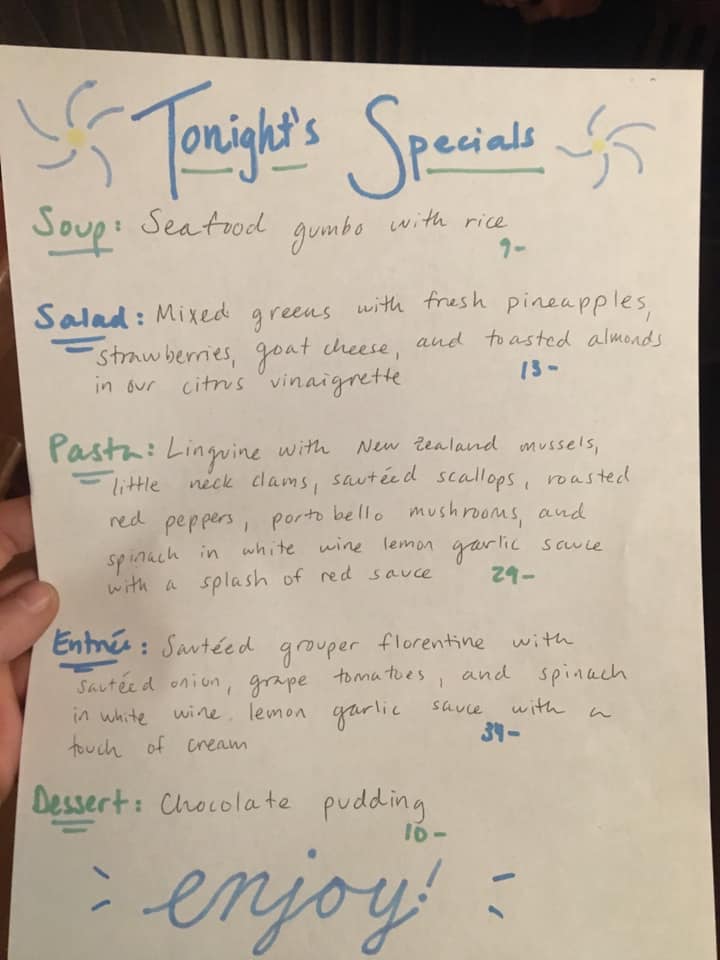 Tonight's Specials
Soup: Seafood gumbo with rice
9-
Salad: Mixed greens with fresh pineapples,
strawberries, goat cheese, and toasted almonds
in our citrus vinaigrette 13-
Pasta: Linguine with New Zealand mussels,
little neck clams, sautéed scallops, roasted
red peppers, portobello mushrooms, and
spinach in white wine lemon garlic sauce
with a splash of red sauce 29-
Entrée: Sautéed grouper florentine with
sautéed onion, grape tomatoes, and spinach
in white wine lemon garlic sauce with a
touch of cream 34-
Dessert: Chocolate pudding
10-
enjoy!